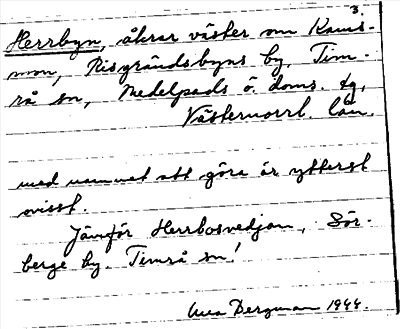 3.
Herrbyn, åkrar väster om Kams-
mon, Risgrändsbyns by, Tim-
rå sn, Medelpads ö. doms. tg,
Västernorrl. län.
med namnet att göra är ytterst
ovisst.
Jämför Herrbosvedjan, Sör-
berge by. Timrå sn!
Bergman 1944.